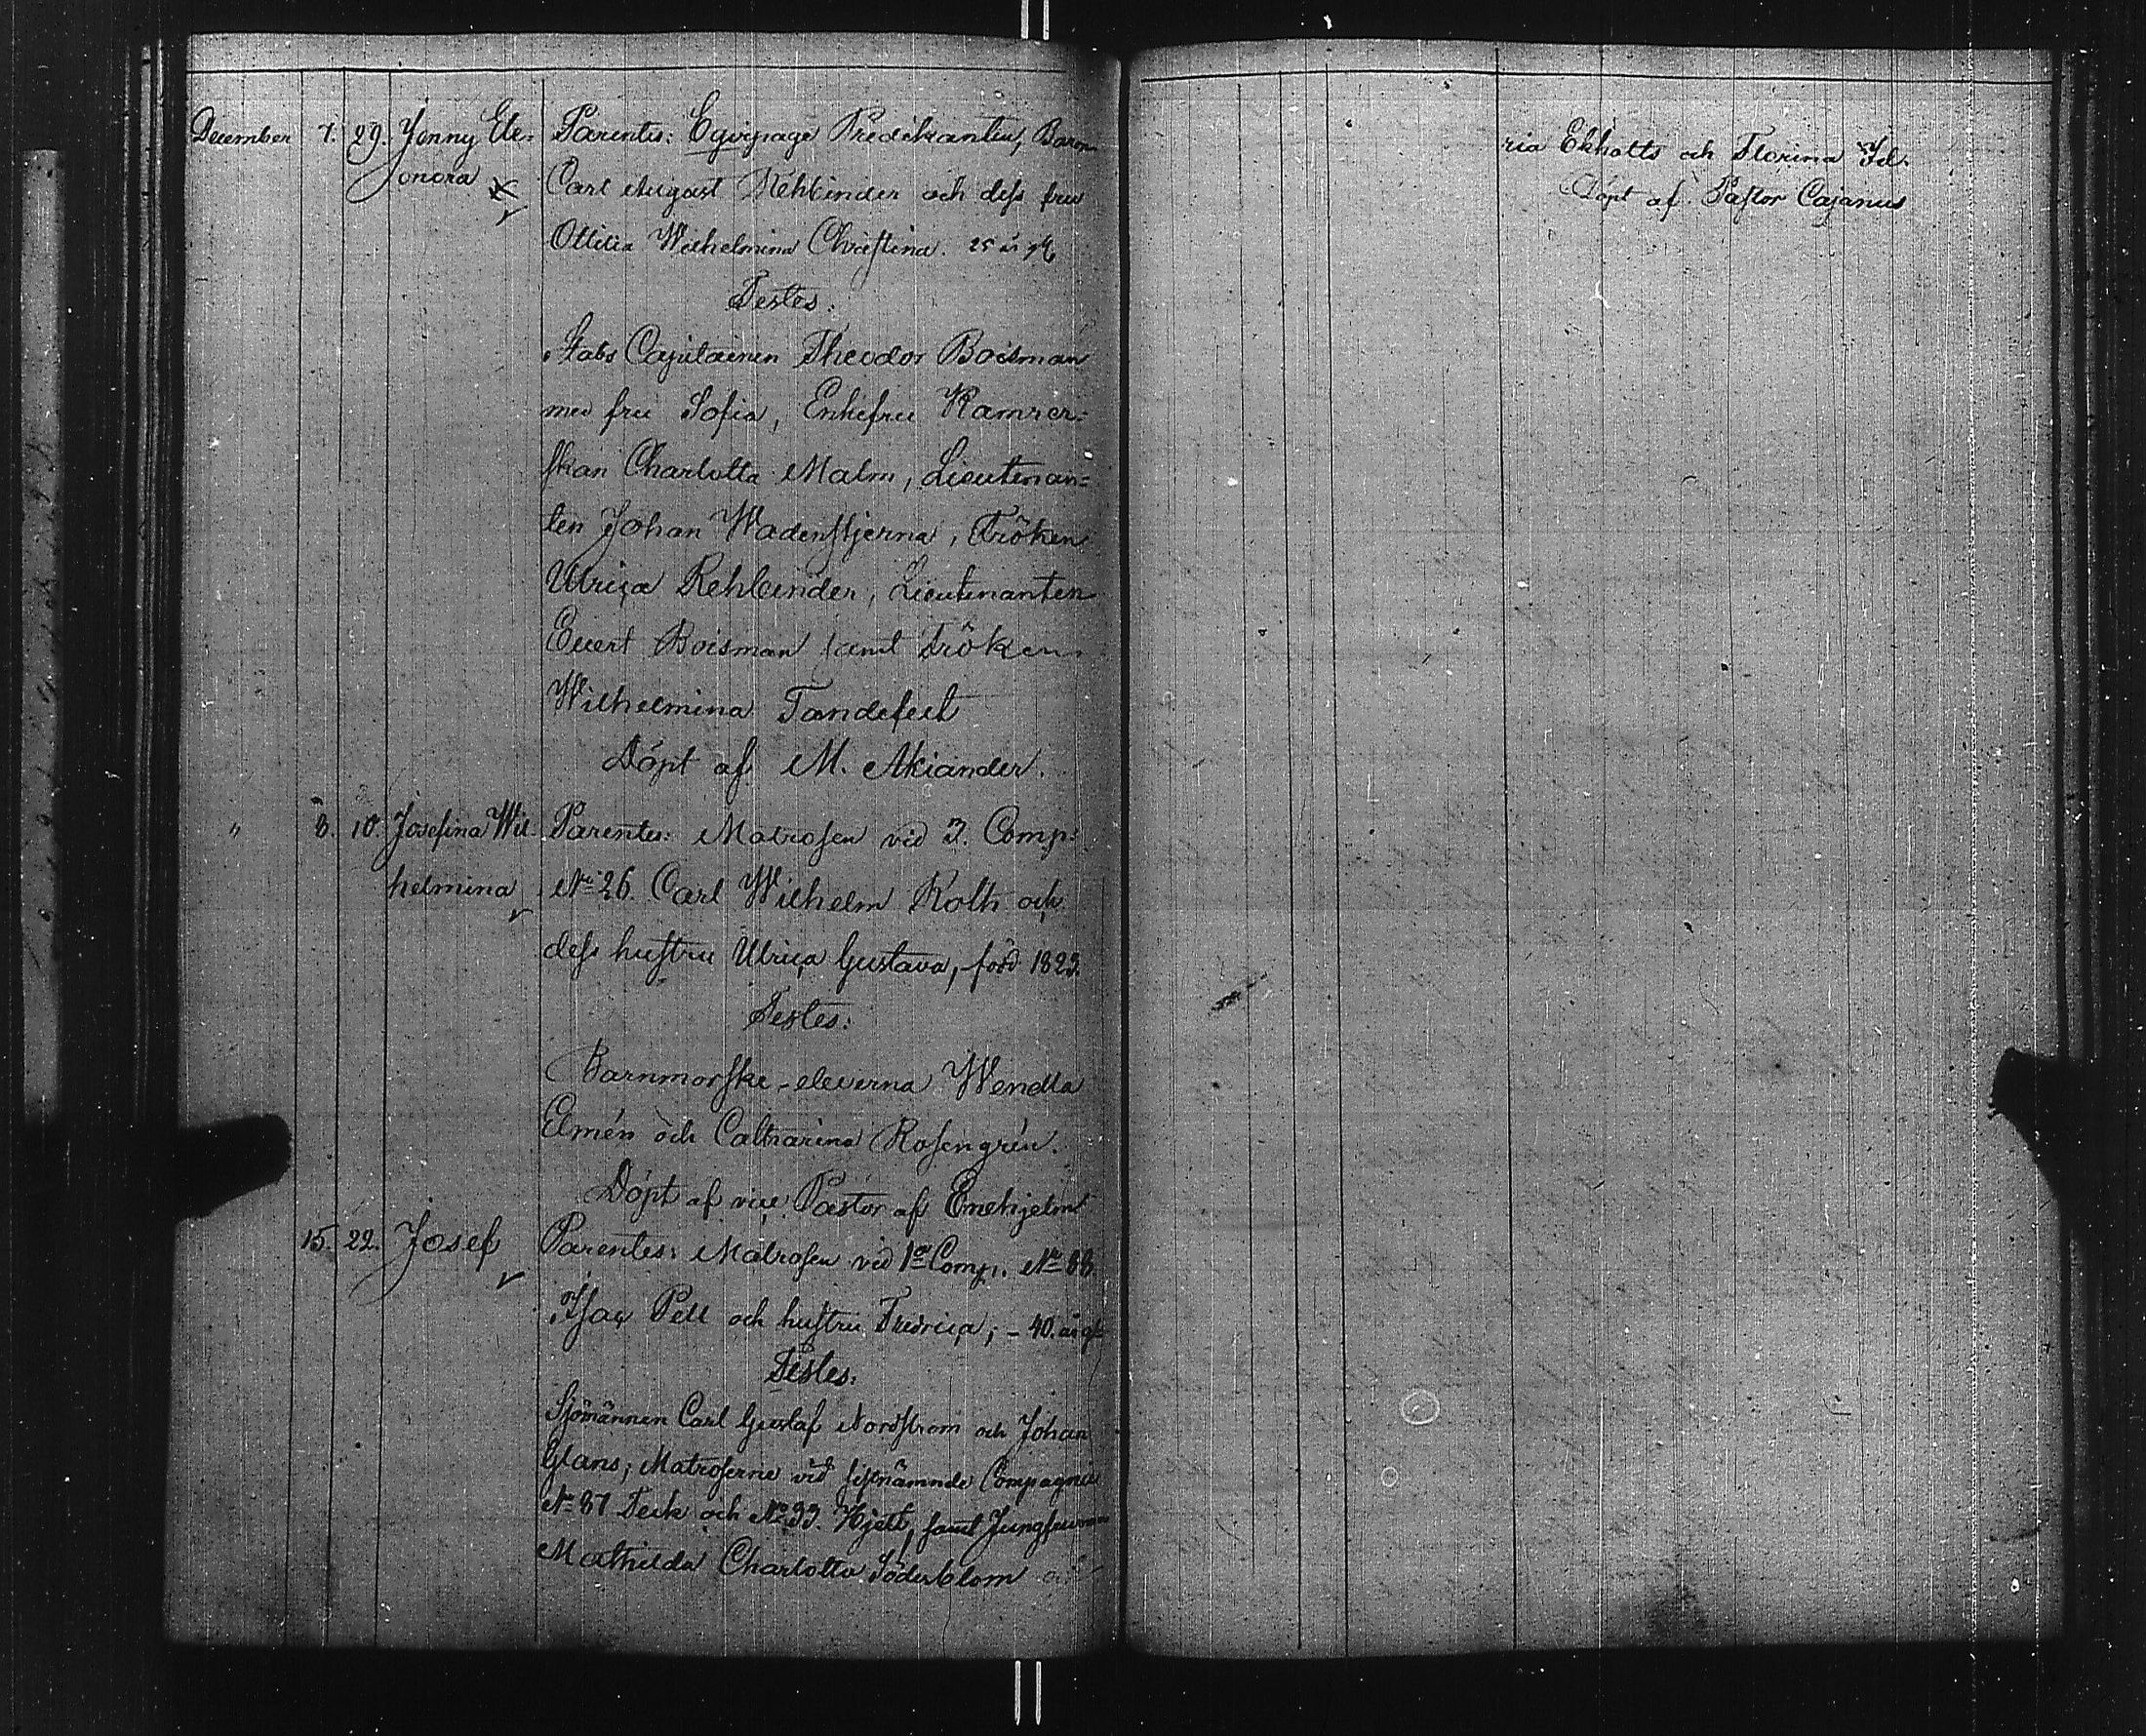 December 7. 29. Jenny Ele= Parentes: Eqvipage Predikanten, Baron
onora Carl August Rehbinder och dess fru
Ottilia Wilhelmina Christina. 25 år
Testes:
Stabs Capitainen Theodor Boisman
med fru Sofia, Enkefru Kamrer=
skan Charlotta Malm, Lieutenan=
ten Johan Wadenstjerna, Fröken
Ulrica Rehbinder, Lieutenanten
Evert Boisman samt Fröken
Wilhelmina Tandefelt
Döpt af M. Akiander.
" 8. 10. Josefina Wil- Parentes: Matrosen vid 3. Comp:
helmina No 26. Carl Wilhelm Roth och
dess hustru Ulrica Gustava, född 1823.
Testes:
Barnmorske-eleverna Wendla
Elmén och Catharina Rosengrén.
Döpt af vice Pastor af Enehjelm
15. 22. Josef Parentes: Matrosen vid 1a Comp. No 88.
Isac Pell och hustru Fredrica; – 40. år
Testes:
Sjömännen Carl Gustaf Nordstrom och Johan
Glans; Matroserne vid sistnämnde Compagnie
No 87 Teck och No 33. Hjelt, samt
Mathilda Charlotta Söderblom
ria Ekholts och Florina
Döpt af Pastor Cajanus